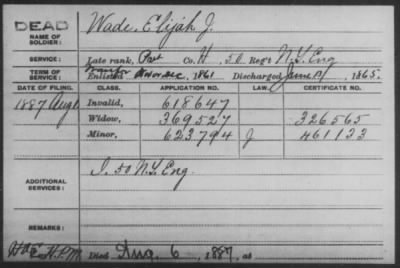 DEAD
NAME OF SOLDIER: Wade, Elijah J.
SERVICE: Late rank, Pvt Co. H, 50 Reg't N.Y. Eng
TERM OF SERVICE: Enlisted 1861 Discharged June 13, 1865.
DATE OF FILING. CLASS. APPLICATION NO. LAW. CERTIFICATE NO.
1887 Aug 1 Invalid, 618647
Widow, 369527 326565
Minor, 623794 J 461133
ADDITIONAL SERVICES: I. 50 N.Y. Eng.
REMARKS:
Died Aug. 6, 1887, at